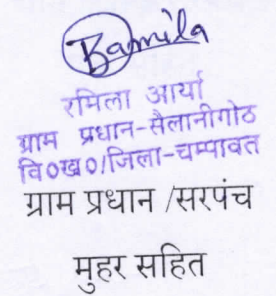 Bamila
रमिला आर्या
ग्राम प्रधान-सैलानीगोठ
वि०ख०/जिला-चम्पावत
ग्राम प्रधान /सरपंच
मुहर सहित